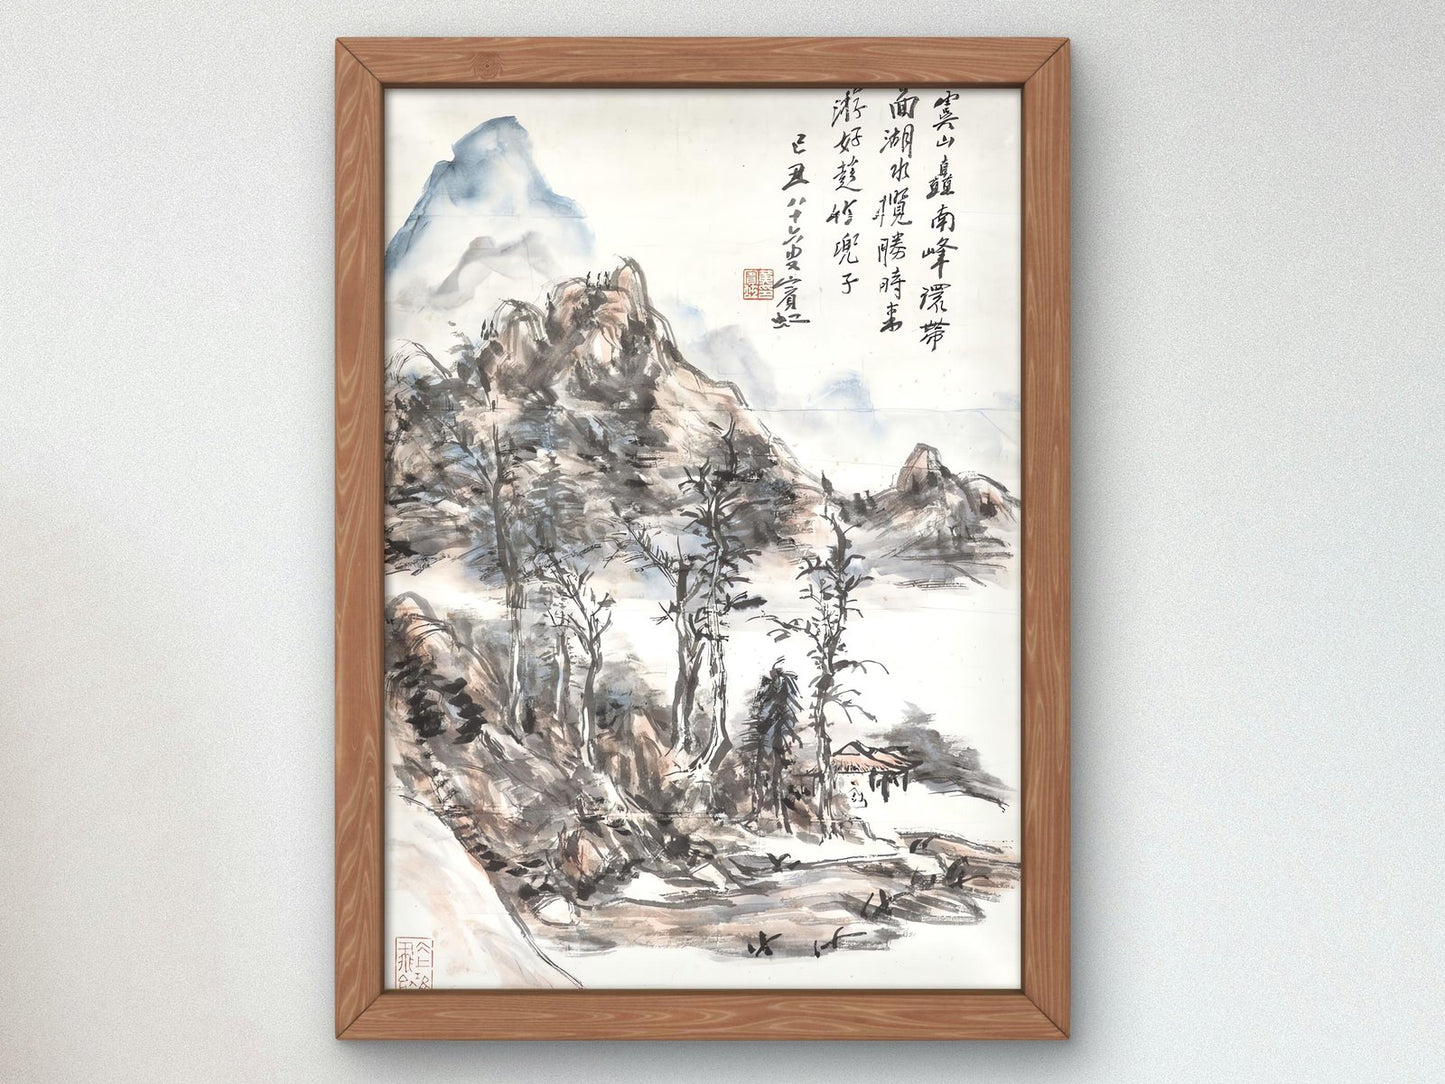 虞山矗南峰環帶
面湖水攬勝時来
游好趁竹兜子
己丑八十六叟賓虹